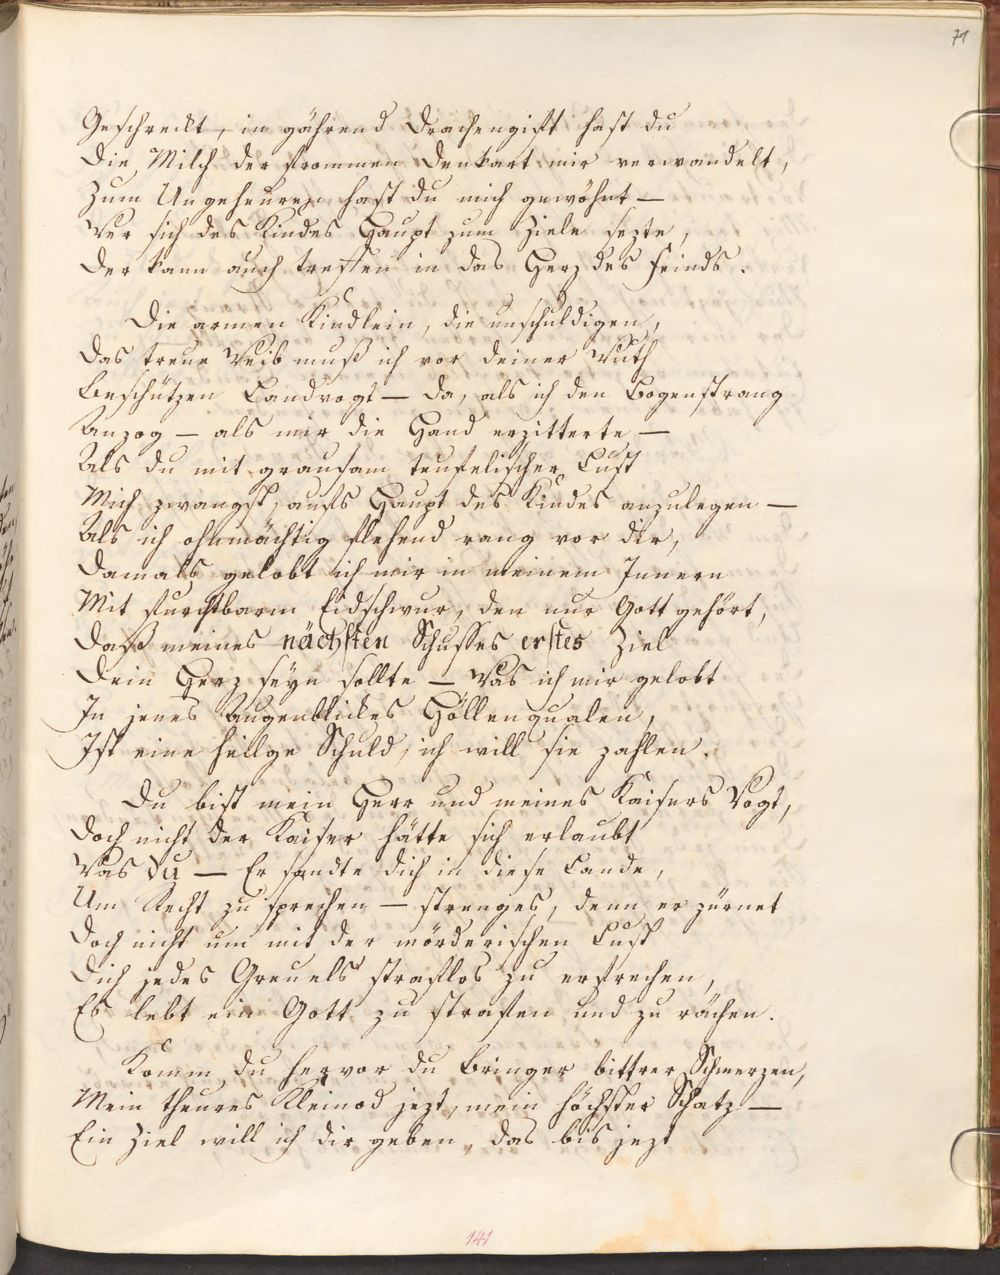 71
Geschreckt, in gährend Drachengift hast du
Die Milch der frommen Denkart mir verwandelt,
Zum Ungeheuren hast du mich gewöhnt —
Wer sich des Kindes Haupt zum Ziele sezte,
Der kann auch treffen in das Herz des Feinds.
Die armen Kindlein, die unschuldigen,
Das treue Weib muß ich vor deiner Wuth
Beschützen Landvogt — Da, als ich den Bogenstrang
Anzog — als mir die Hand erzitterte —
Als du mit grausam teufelischer Lust
Mich zwangst, aufs Haupt des Kindes anzulegen —
Als ich ohnmächtig flehend rang vor dir,
Damals gelobt ich mir in meinem Innern
Mit furchtbarm Eidschwur, den nur Gott gehört,
Daß meines nächsten Schusses erstes Ziel
Dein Herz seyn sollte — Was ich mir gelobt
In jenes Augenblickes Höllenqualen,
Ist eine heilge Schuld, ich will sie zahlen.
Du bist mein Herr und meines Kaisers Vogt,
Doch nicht der Kaiser hätte sich erlaubt
Was Du — Er sandte dich in diese Lande,
Um Recht zu sprechen — strenges, denn er zürnet
Doch nicht um mit der mörderischen Lust
Dich jedes Greuels straflos zu erfrechen,
Es lebt ein Gott zu strafen und zu rächen.
Komm du hervor du Bringer bittrer Schmerzen,
Mein theures Kleinod jezt, mein höchster Schatz —
Ein Ziel will ich dir geben, das bis jezt
141